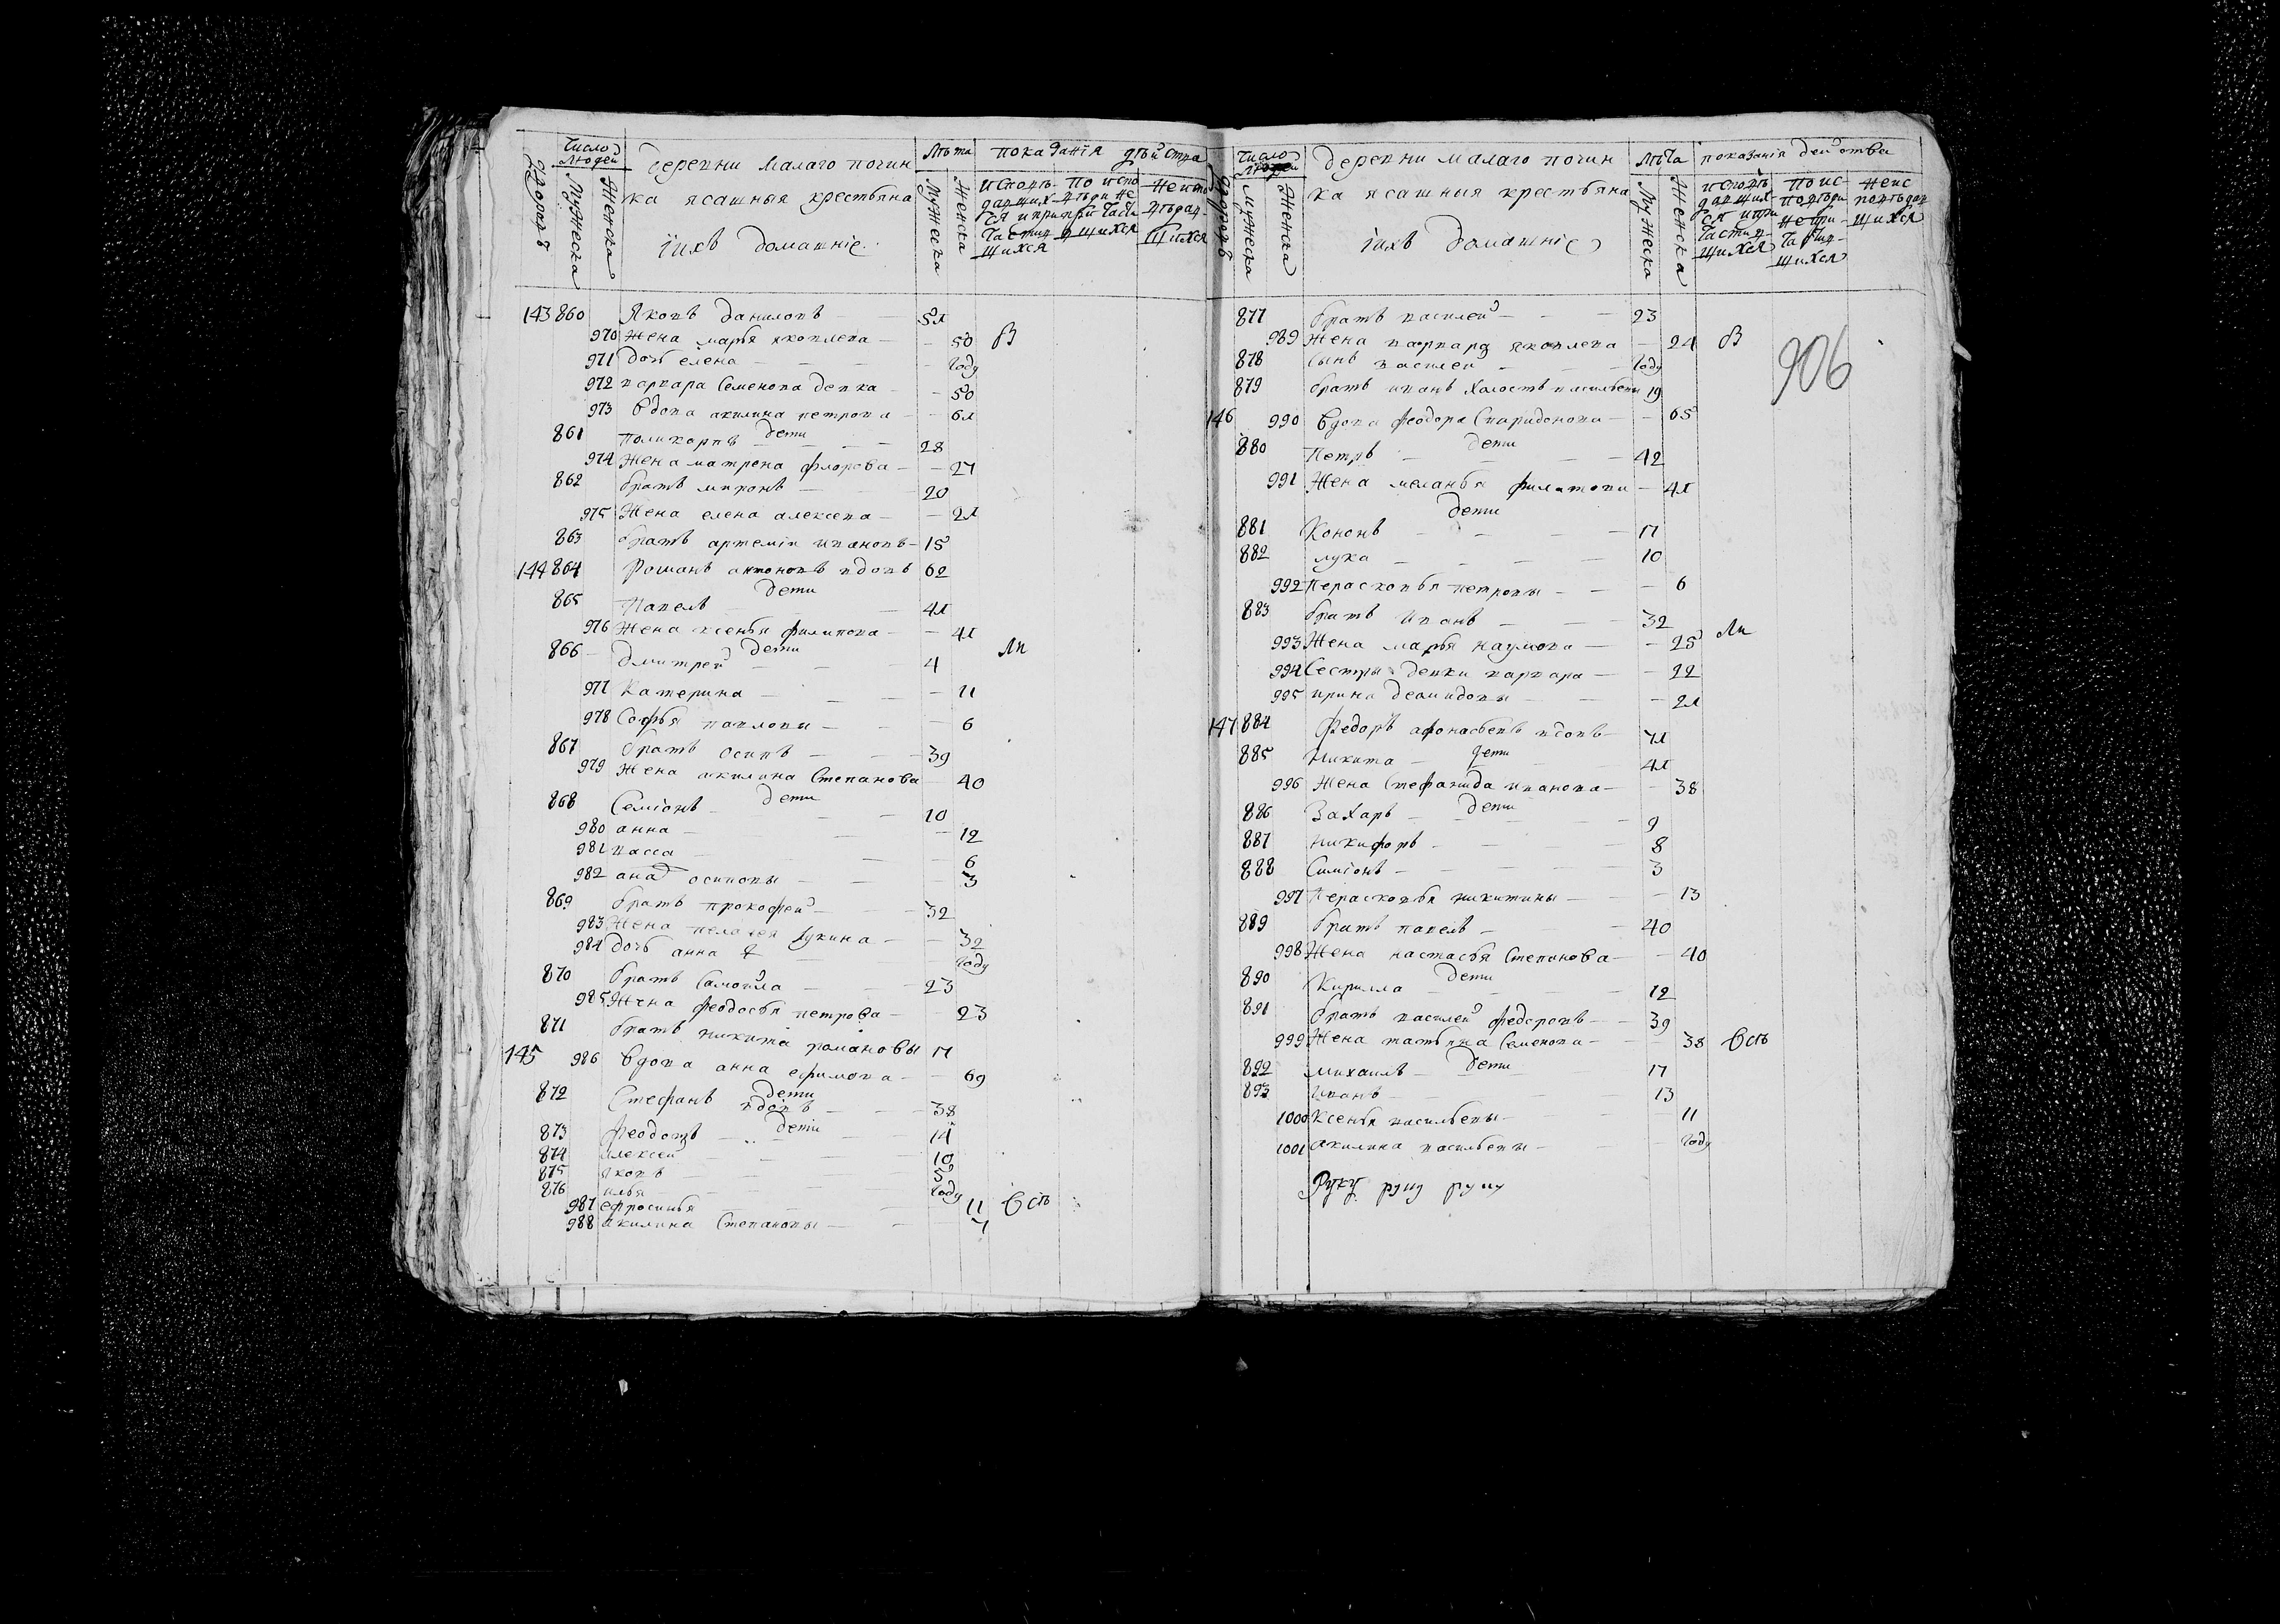 дворовъ
Число людей
Мужеска
Женска
деревни Малаго починка ясашныя крестьяна
 iихъ домашнiе
Лѣта
Мужеска
Женска
показанiя дѣйства
исповѣдавшихся и причастившихся
по исповѣди не причастившихся
не исповѣдавшихся
143 860 Яковъ даниловъ 5
970 Жена марья яковлева 50 В
971 дочь елена году
972 варвара Семенова девка 50
973 вдова акилина петрова 6
дети
861 поликарпъ 28
974 Жена матрена флорова 27
862 братъ миронъ 20
975 Жена елена алексева 2
863 братъ артемiи ивановъ 15
144 864 Романъ антоновъ вдовъ 62
дети
865 Павелъ 4
976 Жена ксенья филипова 4
дети
866 дмитрей 4
977 катерина 11
978 Софья павловы 6
867 братъ осипъ 39
979 Жена акилина Степанова 40
дети
868 Семiонъ 10
980 анна 12
981 васса 6
982 ана осиповы 3
869 братъ прокофей 32
983 Жена пелагея лукина 32
984 дочь анна году
870 братъ Самойла 23
985 Жена феодосья петрова 23
871 братъ никита романовы 17
145 986 вдова анна ефимова 69
дети
872 Стефанъ вдовъ 38
дети
873 феодотъ 14
874 алексеи 10
875 яковъ 5
876 илья году
987 ефросинья 11
988 акилина Степановы 7
дворовъ
Число людей
Мужеска
Женска
деревни малаго починка ясашныя крестьяна
iихъ домашнiе
лѣта
Мужеска
Женска
показанiя действа
исповѣдавшихся и причастившихся
по исповѣди не причастившихся
не исповѣдавшихся
877 братъ василей 23
989 Жена варвара яковлева 24 В
878 сынъ василей году
879 братъ иванъ холостъ васильевы 19
906
146 990 вдова феодора Спиридонова 65
дети
880 Петръ 42
991 Жена меланья филатова 4
дети
881 Кононъ 17
882 лука 10
992 Перасковья петровы 6
883 братъ иванъ 32
993 Жена марья наумова 25
994 Сестры девки варвара 22
995 ирина демидовы 2
147 884 Федоръ афонасьевъ вдовъ 7
дети
885 никита 4
996 Жена Стефанида иванова 38
дети
886 Захаръ 9
887 никифоръ 8
888 Симiонъ 3
997 Перасковья никитины 13
889 братъ павелъ 40
998 Жена настасья Степанова 40
дети
890 Кирилла 12
891 братъ василей федоровъ 39
999 Жена татьяна Семенова 38
дети
892 михаилъ 17
893 иванъ 13
1000 Ксенья васильевы 11
1001 акилина васильевы году